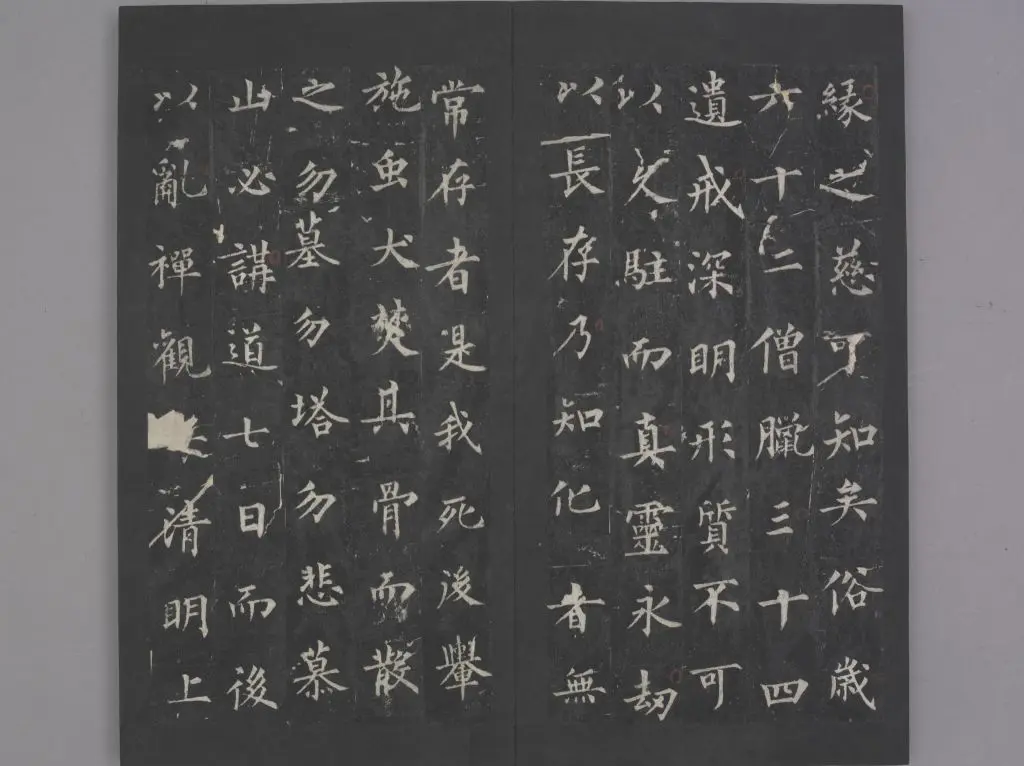 緣之慈可知矣俗歲
六十二僧臘三十四
遺戒深明形質不可
以久駐而真靈永劫
以長存乃知化者無
常存者是我死後轝
施虫犬焚其骨而散
之勿墓勿塔勿悲慕
山必講道七日而後
以亂禪觀清明上